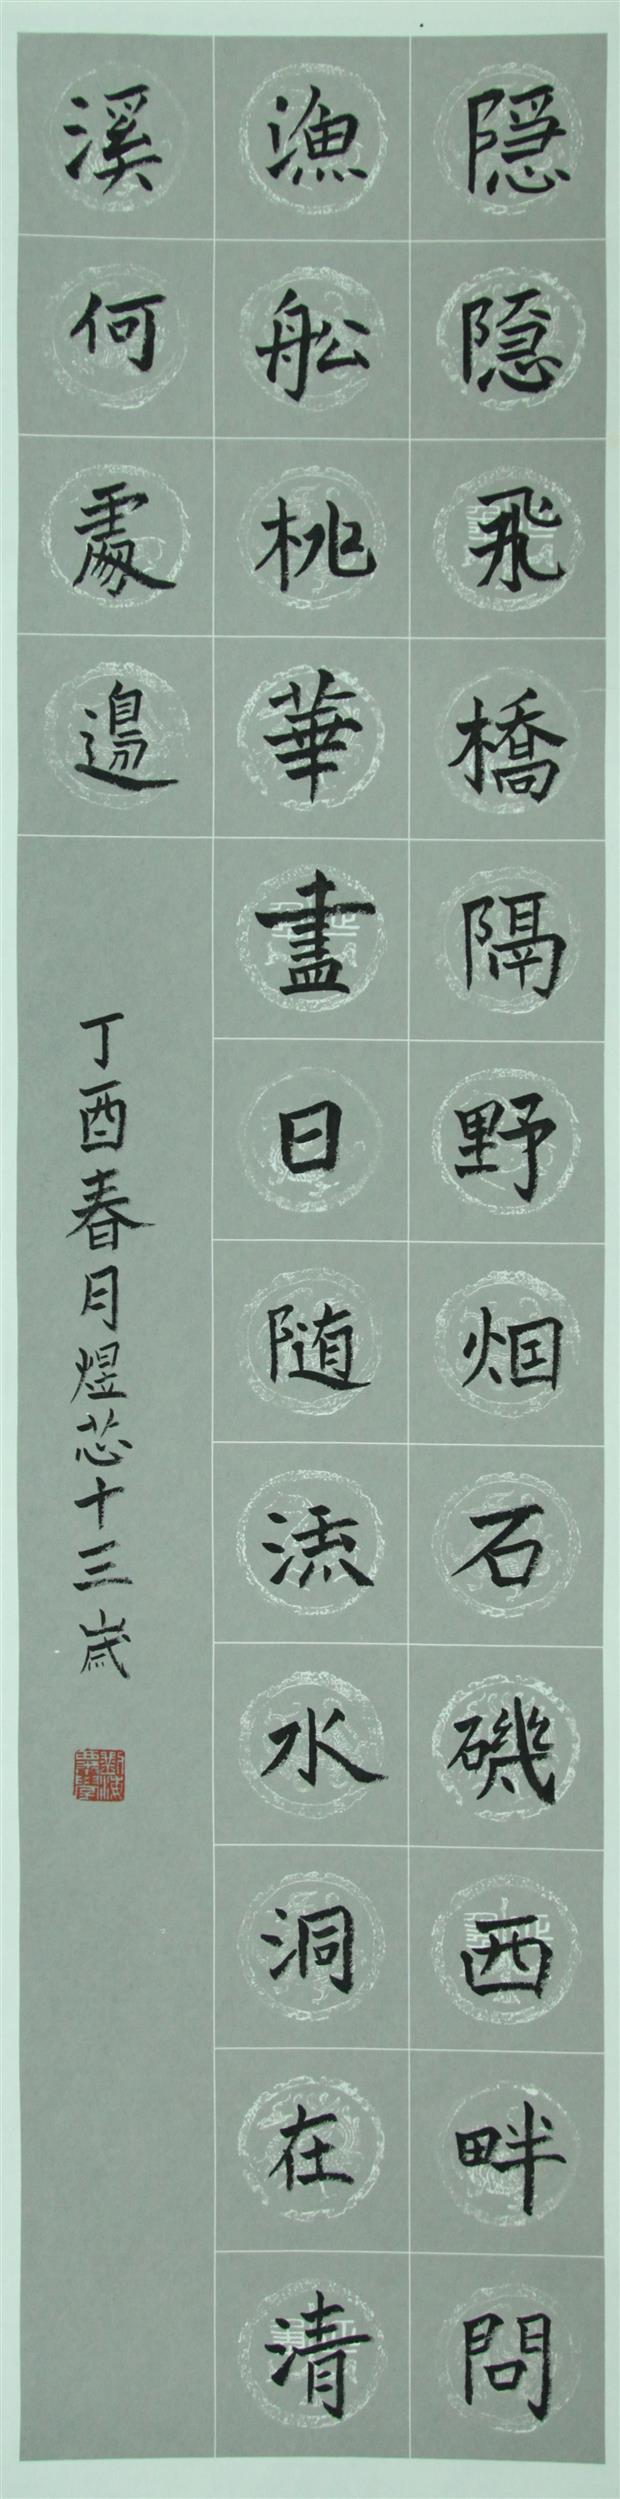 隱隱飛橋隔野烟石磯西畔問
漁船桃華盡日随流水洞在清
溪何處邊
丁酉春月煜芯十三歲